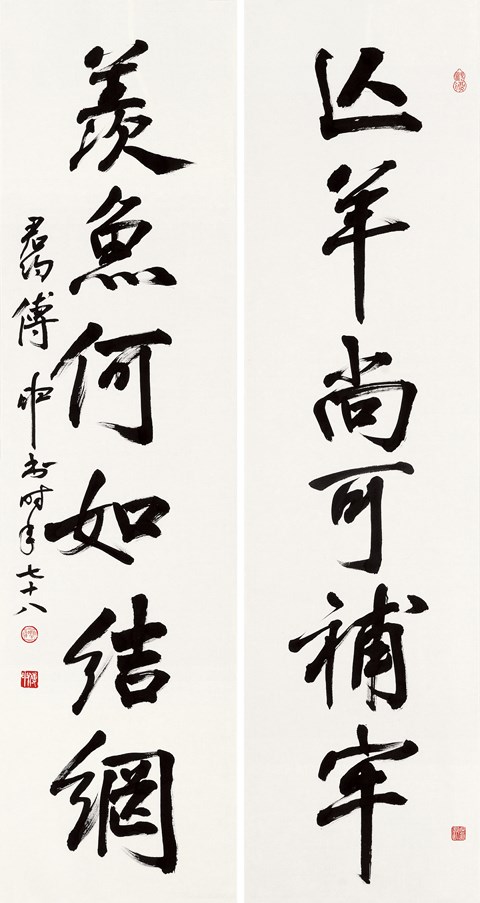 亾羊尚可補牢
羨魚何如結網
君約傅申书时年七十八